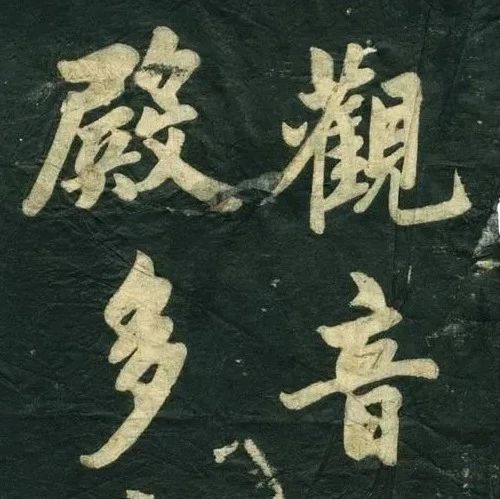 觀音
殿多